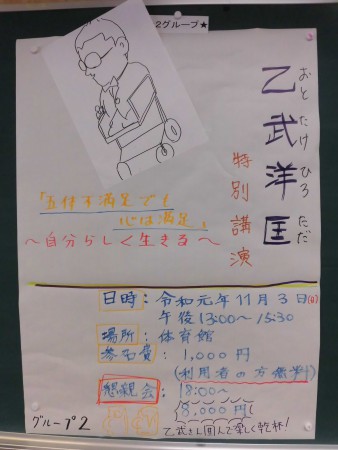 2グループ★
乙武洋匡
おと たけ ひろ ただ
特別講演
「五体不満足でも
心は満足」
〜自分らしく生きる〜
日時：令和元年11月3日(日)
午後13:00〜15:30
場所：体育館
参加費：1,000円
(利用者の方無料)
懇親会 18:00〜
8,000円
乙武さん囲んで楽しく乾杯!
グループ2